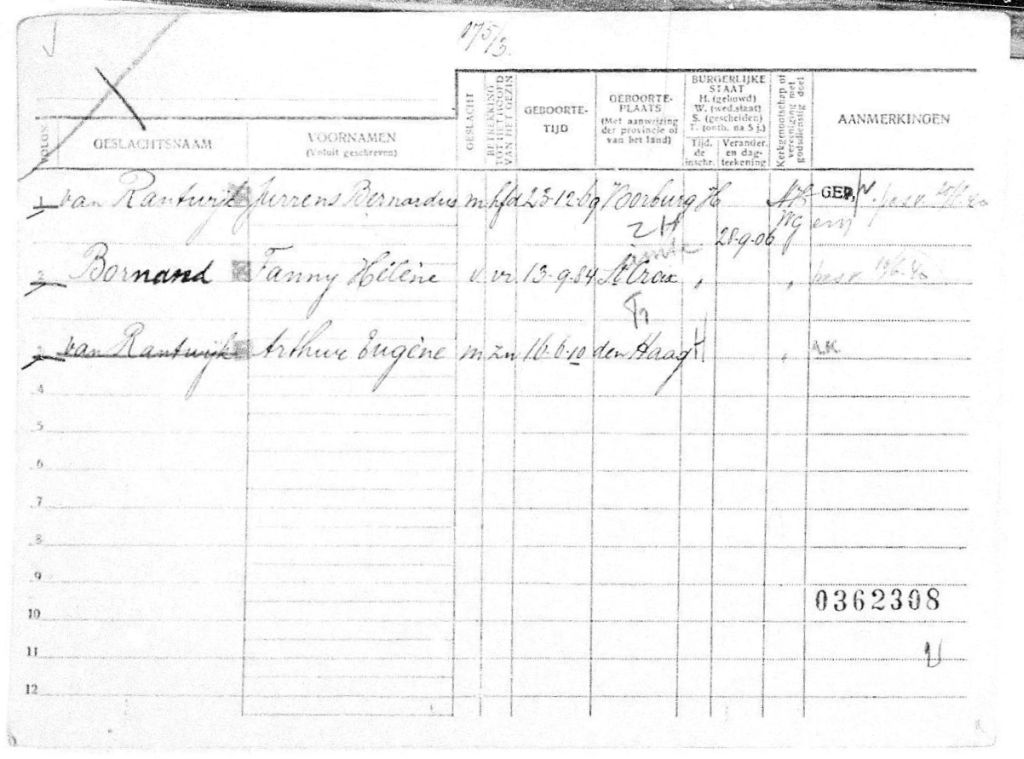 17 5/3.
VOLGN.
GESLACHTSNAAM
VOORNAMEN
(Voluit geschreven)
GESLACHT
BETREKKING TOT HET HOOFD VAN HET GEZIN
GEBOORTE-
TIJD
GEBOORTE-
PLAATS
(Met aanwijzing
der provincie of
van het land)
BURGERLIJKE
STAAT
H. (gehuwd)
W. (wed.staat)
S. (gescheiden)
T. (onth. na 5 j.)
Tijd.
de
inschr.
Verander.
en dag-
teekening
Kerkgenootschap of vereeniging met godsdienstig doel
AANMERKINGEN
1 van Rantwijk Jurrens Bernardus m hfd 23-12-69 Voorburg H NH GED.
ZH 28-9-06 Wg em
2 Bornand Fanny Hélène v. vr. 13-9-84 St Croix " " pasv.
3 van Rantwijk Arthur Eugène m zn 16-6-10 den Haag " A.K.
4
5
6
7
8
9
0362308
10
11
12